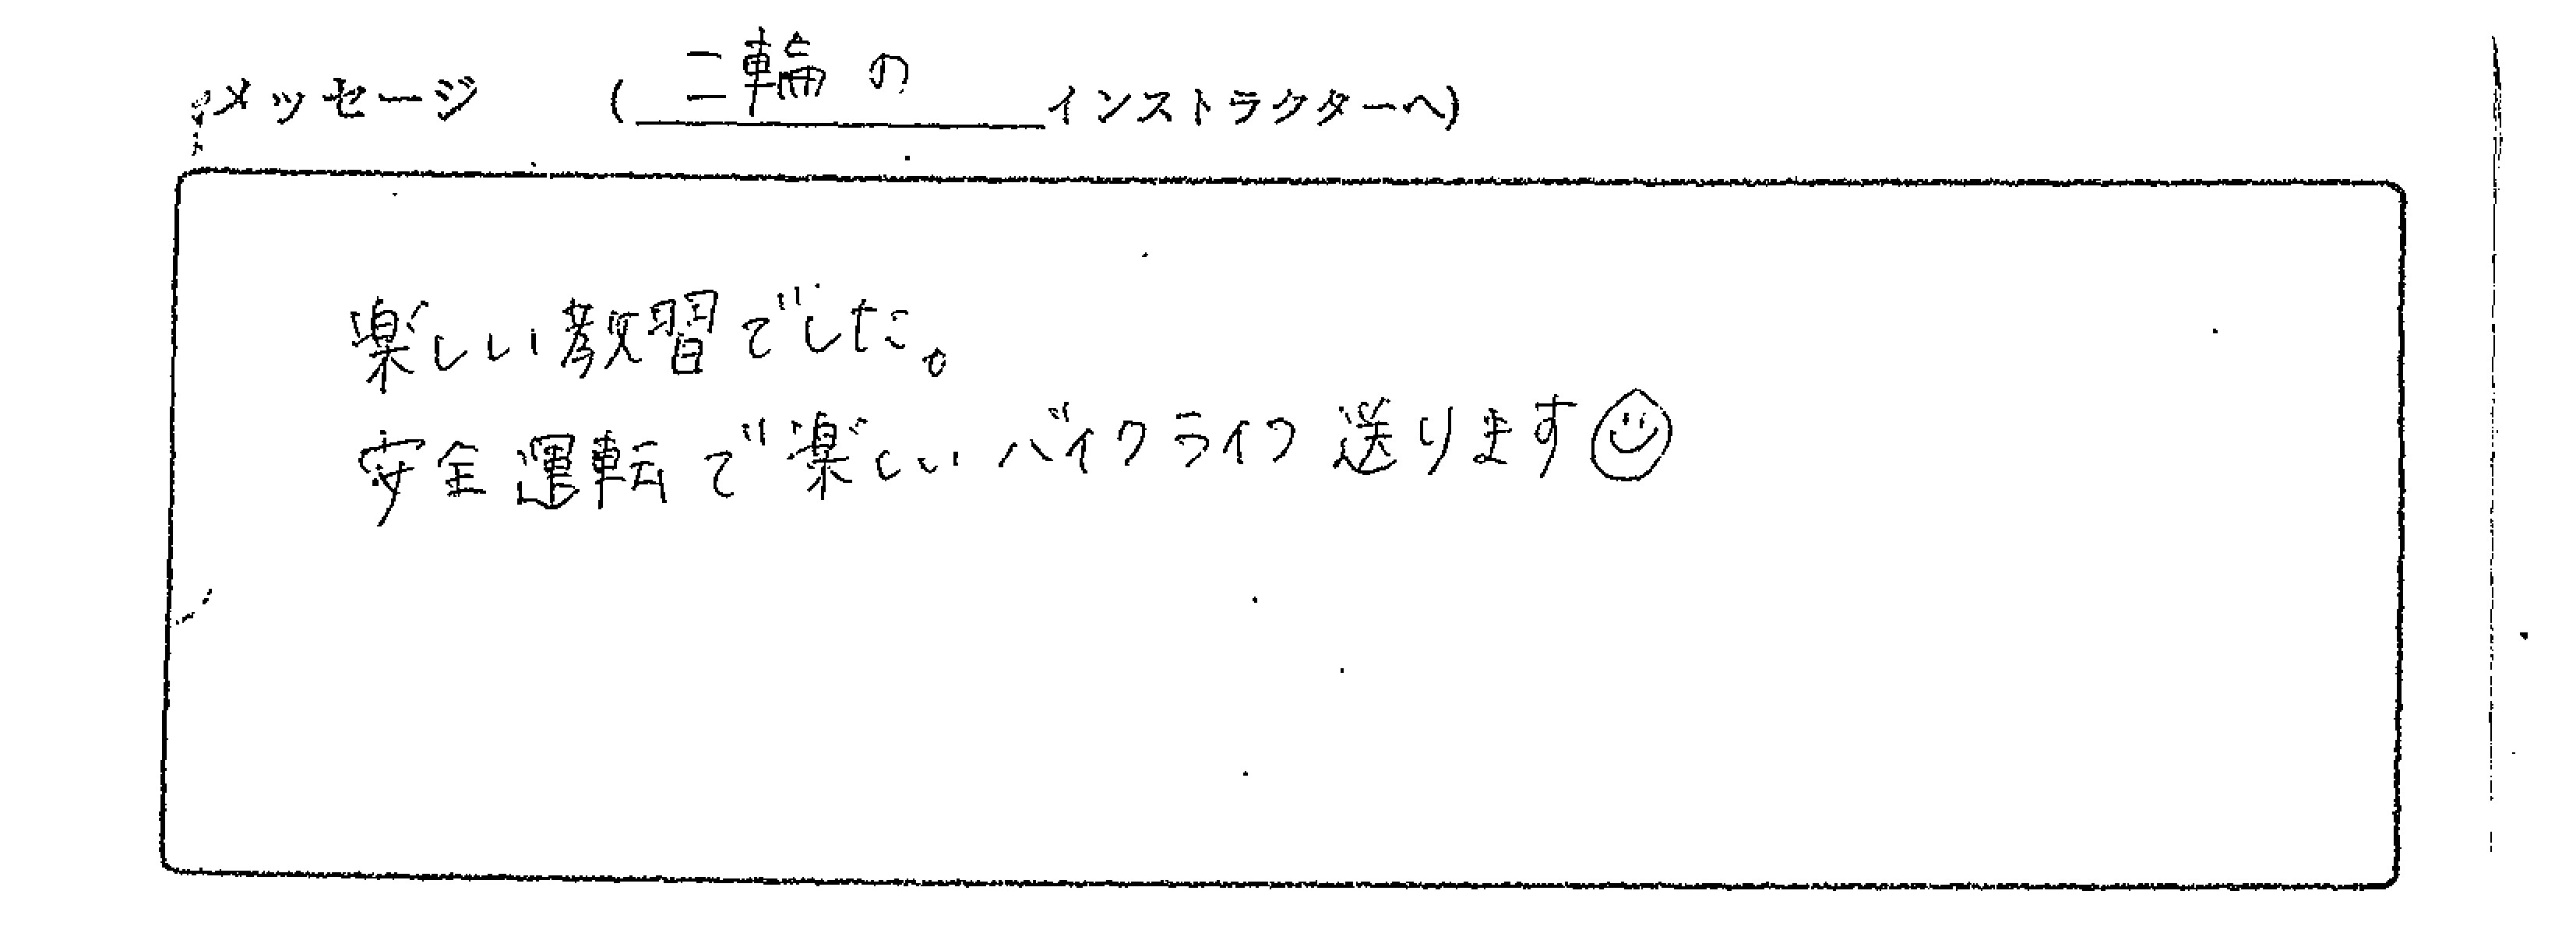 メッセージ (二輪のインストラクターへ)
楽しい教習でした。
安全運転で楽しいバイクライフ送ります☺